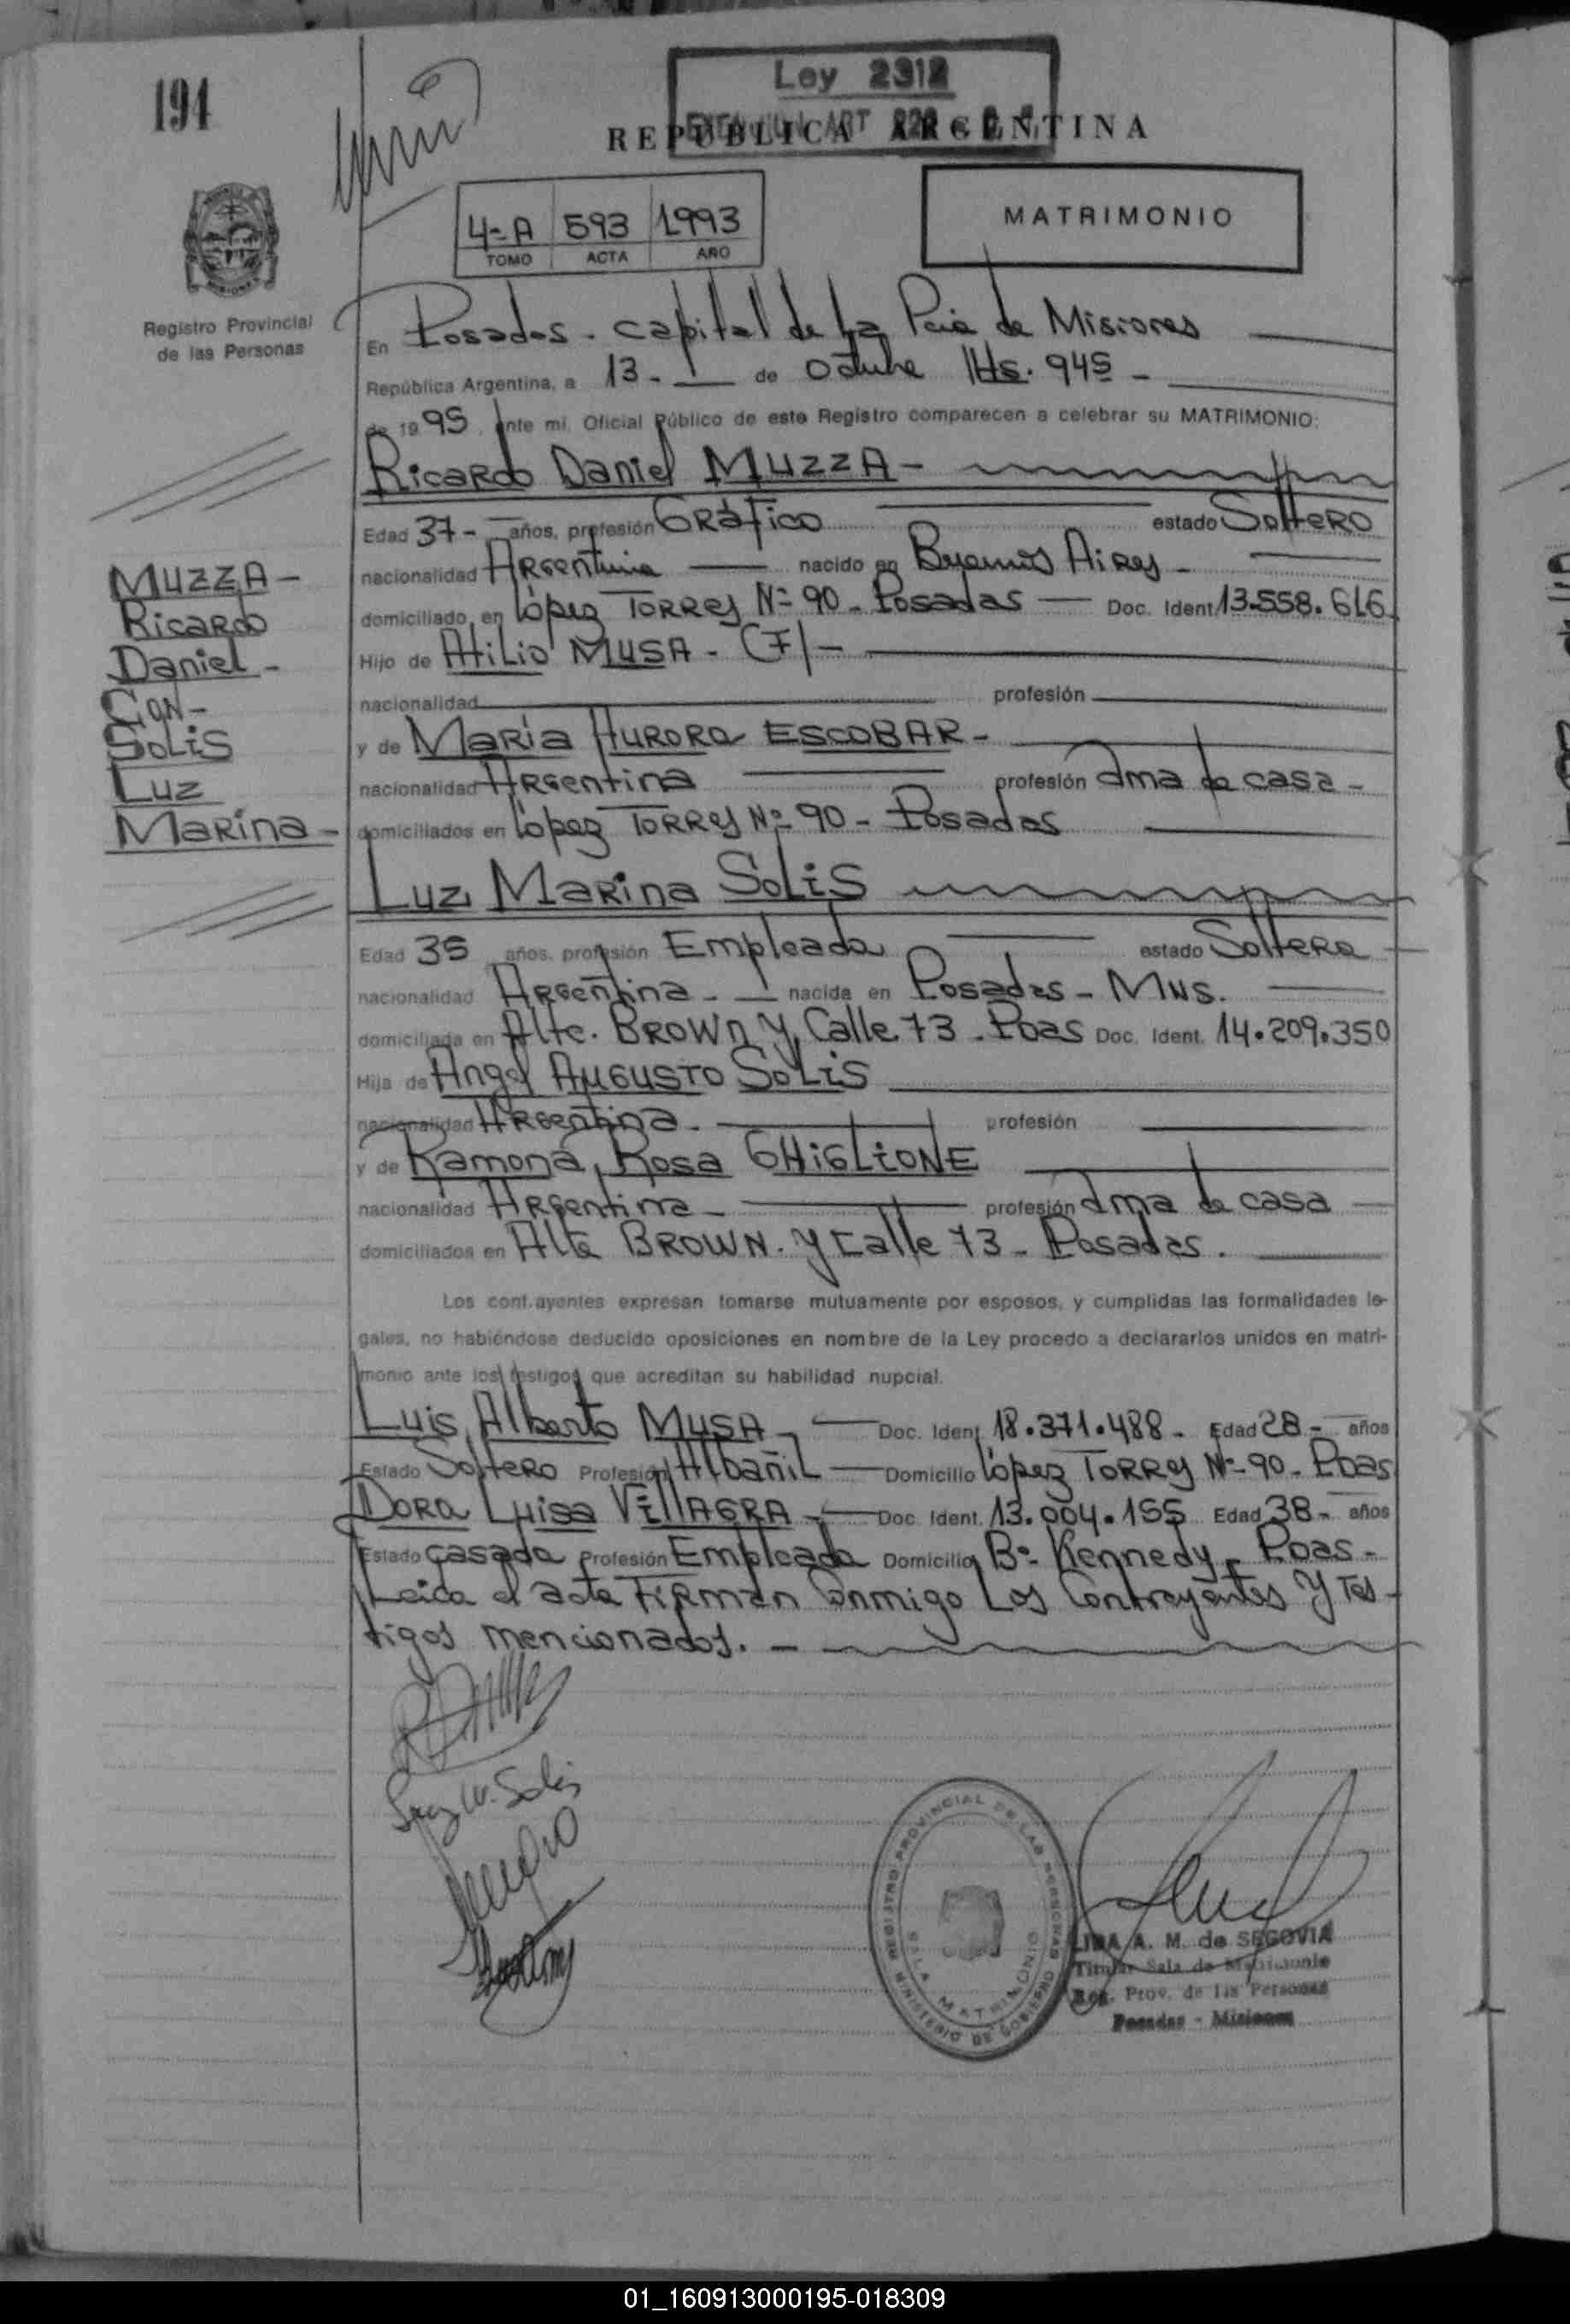 194
Ley 2312
REPUBLICA ARGENTINA
4-A 593 1993
TOMO ACTA AÑO
MATRIMONIO
Registro Provincial
de las Personas
En Posadas - capital de la Pcia de Misiones
República Argentina, a 13 - de octubre Hs. 945 -
de 1995, ante mi, Oficial Público de este Registro comparecen a celebrar su MATRIMONIO:
Ricardo Daniel MUZZA -
Edad 37 - años, profesión Gráfico estado Soltero
nacionalidad Argentina nacido en Buenos Aires -
domiciliado en López Torres Nº 90 - Posadas - Doc. Ident. 13.558.616
Hijo de Atilio MUSA - (F) -
nacionalidad profesión
y de María Aurora ESCOBAR -
nacionalidad Argentina profesión ama de casa -
domiciliados en López Torres Nº 90 - Posadas
MUZZA -
Ricardo
Daniel -
CON -
SOLIS
Luz
Marina -
Luz Marina SOLIS
Edad 35 años, profesión Empleada estado Soltera
nacionalidad Argentina - nacida en Posadas - Mns.
domiciliada en Alte. BROWN y Calle 73 - Pdas Doc. Ident. 14.209.350
Hija de Angel Augusto SOLIS
nacionalidad Argentina - profesión
y de Ramona Rosa GHIGLIONE
nacionalidad Argentina - profesión ama de casa
domiciliados en Alte BROWN. y Calle 73 - Posadas.
Los contrayentes expresan tomarse mutuamente por esposos, y cumplidas las formalidades le-
gales, no habiéndose deducido oposiciones en nombre de la Ley procedo a declararlos unidos en matri-
monio ante los testigos que acreditan su habilidad nupcial.
Luis Alberto MUSA - Doc. Ident. 18.371.488 - Edad 28 - años
Estado Soltero Profesión Albañil - Domicilio López Torres Nº 90 - Pdas
Dora Luisa VillAGRA - Doc. Ident. 13.004.155 Edad 38 - años
Estado casada Profesión Empleada Domicilio Bº Kennedy - Pdas -
Leida el acta Firman Conmigo Los Contrayentes y Tes-
tigos mencionados. -
Luz M. Solis
REGISTRO PROVINCIAL DE LAS PERSONAS
SALA MATRIMONIO
MINISTERIO DE GOBIERNO
A. M. de SEGOVIA
Titular Sala de Matrimonio
Reg. Prov. de las Personas
Posadas - Misiones
01_160913000195-018309